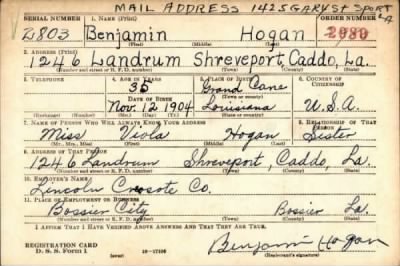 MAIL ADDRESS 1425 GARY ST SPORT LA
SERIAL NUMBER 1. NAME (Print) ORDER NUMBER
2803 Benjamin Hogan 2980
(First) (Middle) (Last)
2. ADDRESS (Print)
1246 Landrum Shreveport, Caddo, La.
(Number and street or R. F. D. number) (Town) (County) (State)
3. TELEPHONE 4. AGE IN YEARS 5. PLACE OF BIRTH 6. COUNTRY OF CITIZENSHIP
35 Grand Cane
DATE OF BIRTH (Town or county)
Nov. 12 1904 Louisiana U.S.A.
(Exchange) (Number) (Mo.) (Day) (Yr.) (State or country)
7. NAME OF PERSON WHO WILL ALWAYS KNOW YOUR ADDRESS 8. RELATIONSHIP OF THAT PERSON
Miss Viola Hogan Sister
(Mr., Mrs., Miss) (First) (Middle) (Last)
9. ADDRESS OF THAT PERSON
1246 Landrum Shreveport, Caddo, La.
(Number and street or R. F. D. number) (Town) (County) (State)
10. EMPLOYER'S NAME
Lincoln Creosote Co.
11. PLACE OF EMPLOYMENT OR BUSINESS
Bossier City Bossier La.
(Number and street or R. F. D. number) (Town) (County) (State)
I AFFIRM THAT I HAVE VERIFIED ABOVE ANSWERS AND THAT THEY ARE TRUE.
REGISTRATION CARD
D. S. S. Form 1 (over) Benjamin Hogan
(Registrant's signature)